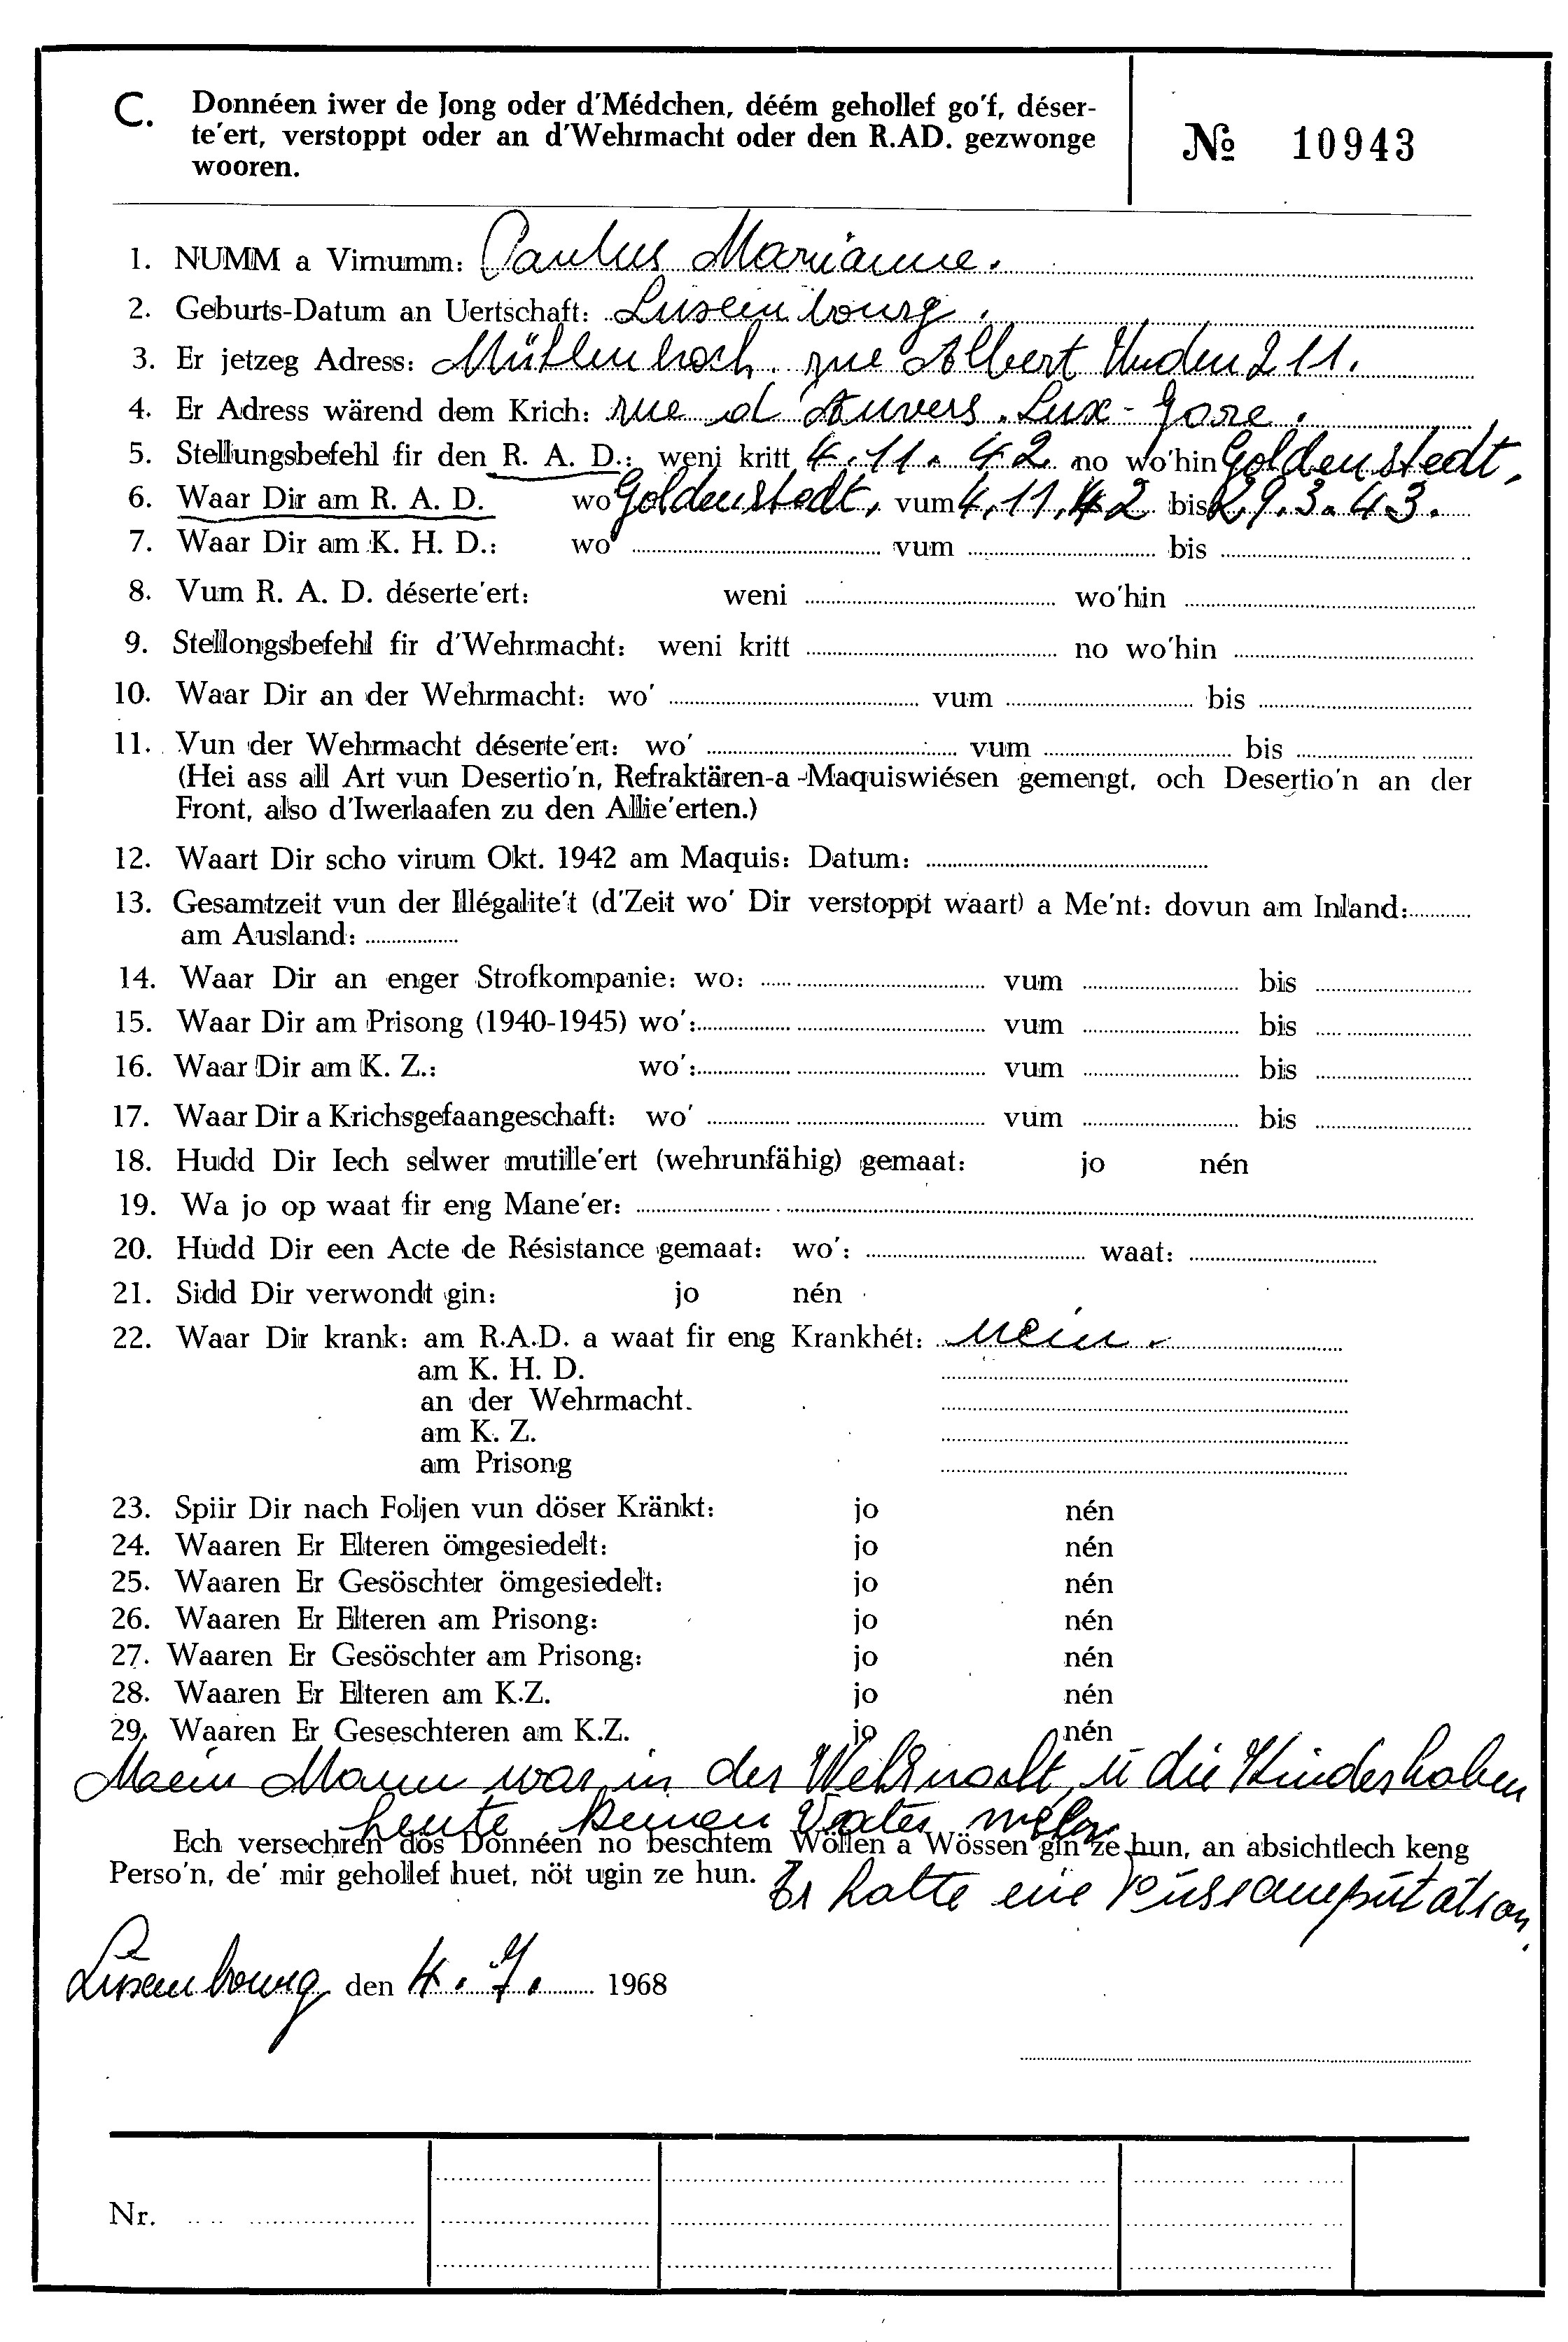 C. Donnéen iwer de Jong oder d'Médchen, déém gehollef go'f, déser-
te'ert, verstoppt oder an d'Wehrmacht oder den R.AD. gezwonge
wooren.
№ 10943
1. NUMM a Virnumm: Paulus Marianne.
2. Geburts-Datum an Uertschaft: Luxembourg.
3. Er jetzeg Adress: Mühlenbach. rue Albert Unden 211.
4. Er Adress wärend dem Krich: rue d'Anvers. Lux-Gare.
5. Stellungsbefehl fir den R. A. D.: weni kritt 4.11.42 no wo'hin Goldenstedt.
6. Waar Dir am R. A. D. wo Goldenstedt, vum 4.11.42 bis 29.3.43.
7. Waar Dir am K. H. D.: wo' vum bis
8. Vum R. A. D. déserte'ert: weni wo'hin
9. Stellongsbefehl fir d'Wehrmacht: weni kritt no wo'hin
10. Waar Dir an der Wehrmacht: wo' vum bis
11. Vun der Wehrmacht déserte'ert: wo' vum bis
(Hei ass all Art vun Desertio'n, Refraktären-a -Maquiswiésen gemengt, och Desertio'n an der
Front, also d'Iwerlaafen zu den Allie'erten.)
12. Waart Dir scho virum Okt. 1942 am Maquis: Datum:
13. Gesamtzeit vun der Illégalite't (d'Zeit wo' Dir verstoppt waart) a Me'nt: dovun am Inland:
am Ausland:
14. Waar Dir an enger Strofkompanie: wo: vum bis
15. Waar Dir am Prisong (1940-1945) wo': vum bis
16. Waar Dir am K. Z.: wo': vum bis
17. Waar Dir a Krichsgefaangeschaft: wo' vum bis
18. Hudd Dir Iech selwer mutille'ert (wehrunfähig) gemaat: jo nén
19. Wa jo op waat fir eng Mane'er:
20. Hudd Dir een Acte de Résistance gemaat: wo': waat:
21. Sidd Dir verwondt gin: jo nén
22. Waar Dir krank: am R.A.D. a waat fir eng Krankhét: nein.
am K. H. D.
an der Wehrmacht.
am K. Z.
am Prisong
23. Spiir Dir nach Foljen vun döser Kränkt: jo nén
24. Waaren Er Elteren ömgesiedelt: jo nén
25. Waaren Er Gesöschter ömgesiedelt: jo nén
26. Waaren Er Elteren am Prisong: jo nén
27. Waaren Er Gesöschter am Prisong: jo nén
28. Waaren Er Elteren am K.Z. jo nén
29. Waaren Er Geseschteren am K.Z. jo nén
Mein Mann war in der Wehrmacht, u die Kinder haben
heute keinen Vater mehr
Ech versechren dös Donnéen no beschtem Wöllen a Wössen gin ze hun, an absichtlech keng
Perso'n, de' mir gehollef huet, nöt ugin ze hun.
Er hatte eine Fussamputation.
Luxembourg den 4. 7. 1968
Nr.